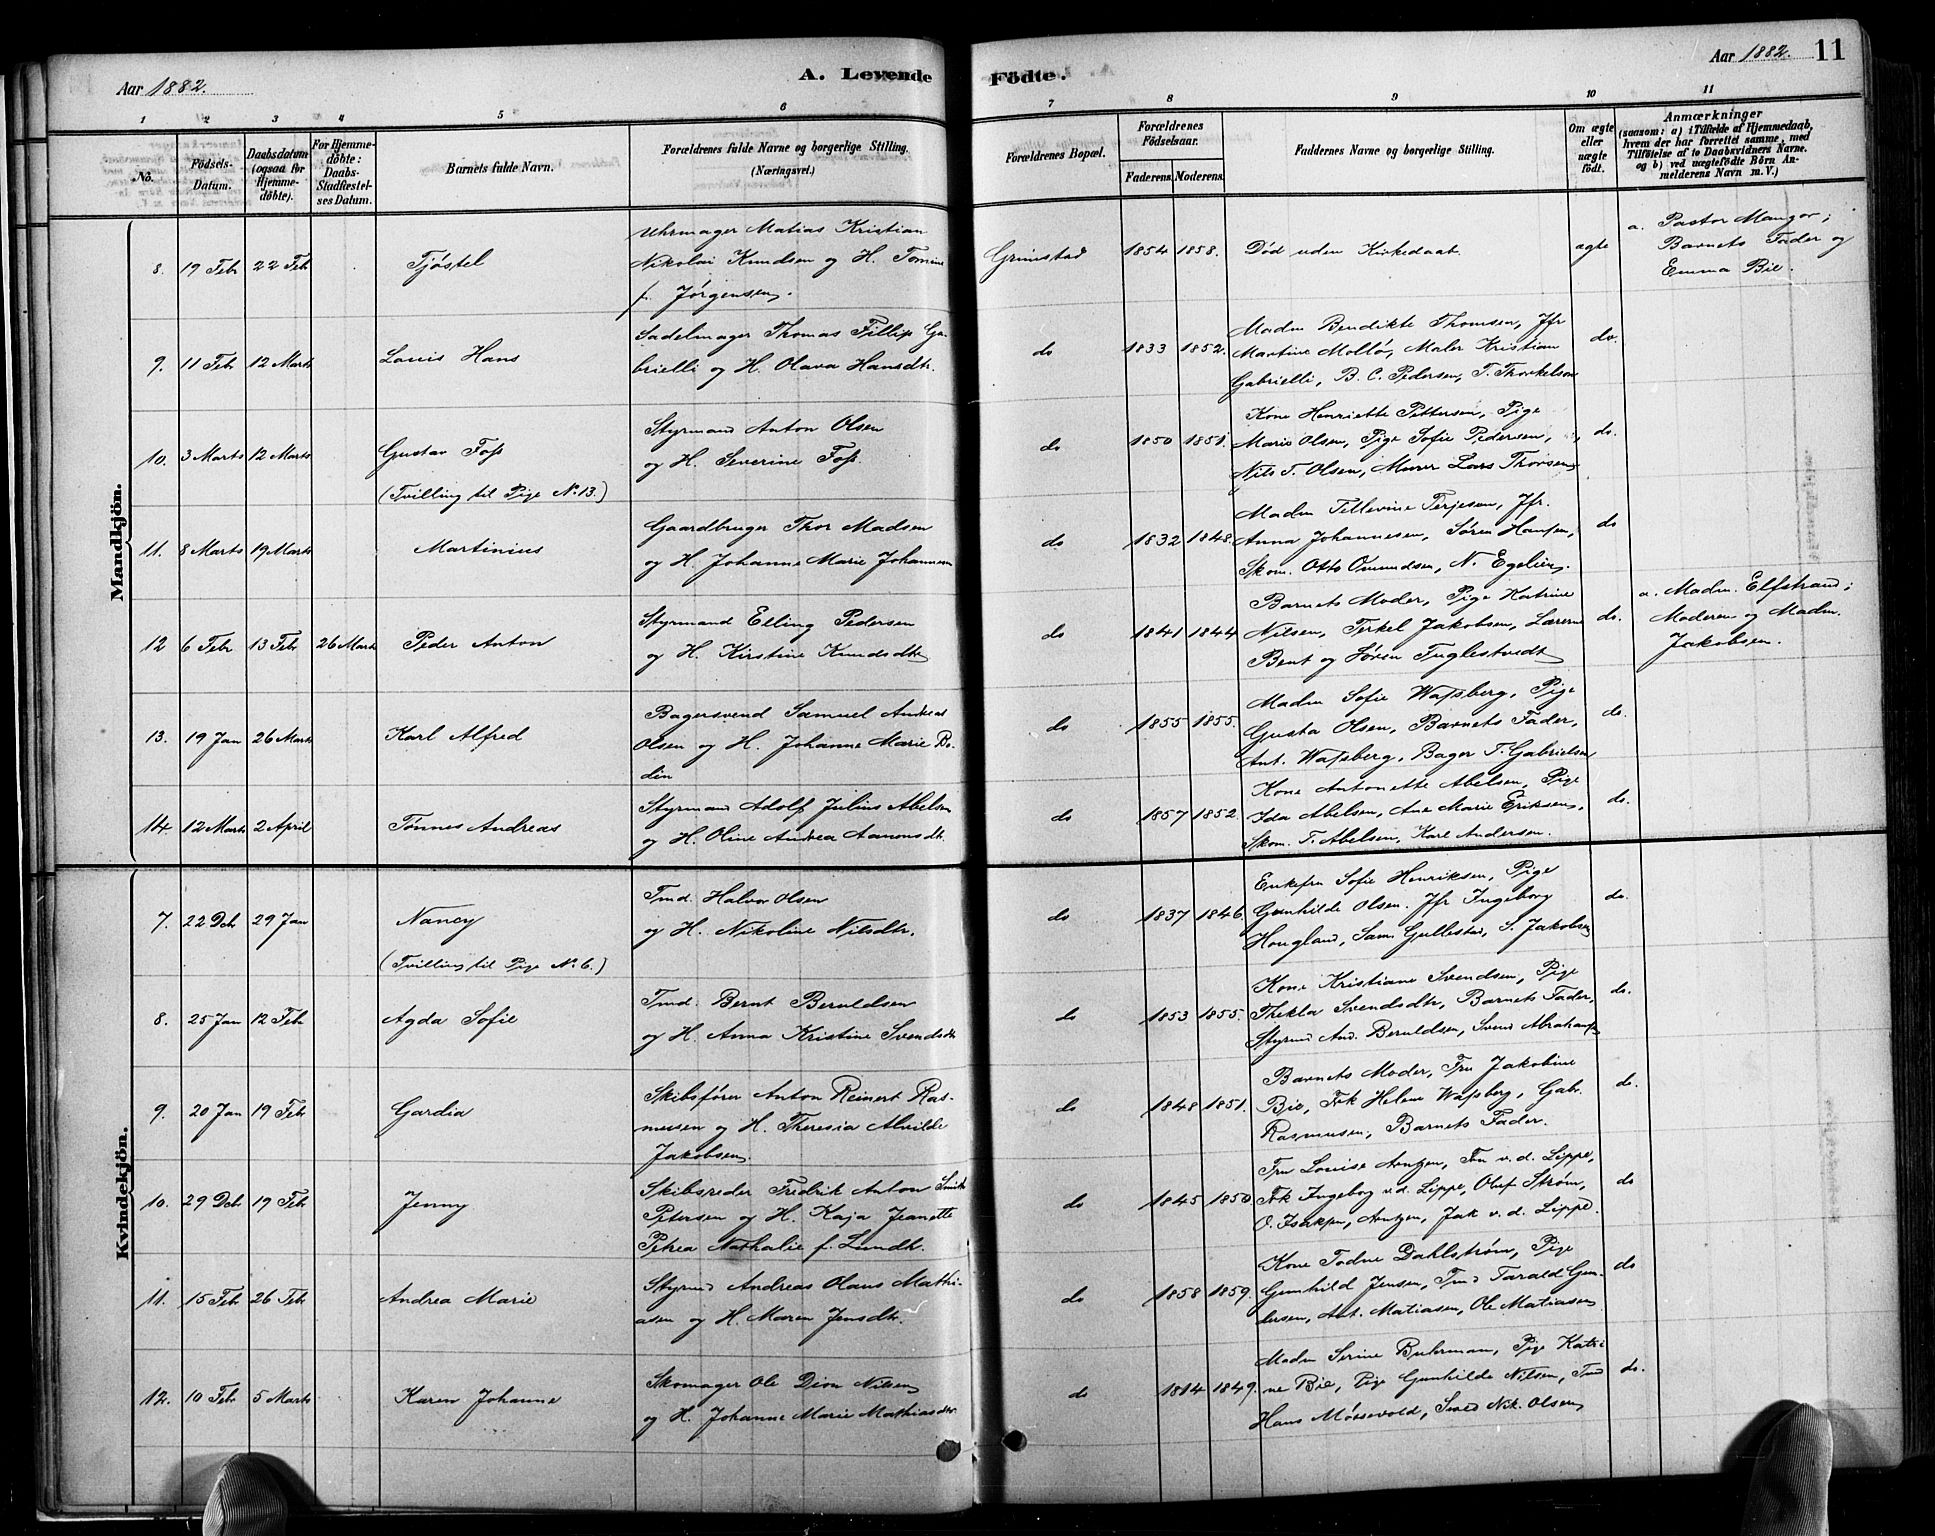 Aar 1882.
A. Levende Födte.
Aar 1882. 11
1 2 3 4 5 6 7 8 9 10 11
No.
Födsels-Datum.
Daabsdatum (ogsaa for Hjemmedøbte).
For Hjemmedøbte: Daabs-Stadfæstelses Datum.
Barnets fulde Navn.
Forældrenes fulde Navne og borgerlige Stilling. (Næringsvei.)
Forældrenes Bopæl.
Forældrenes Födselsaar.
Faderens. Moderens.
Faddernes Navne og borgerlige Stilling.
Om ægte eller uægte födt.
Anmærkninger (saasom: a) i Tilfælde af Hjemmedaab, hvem der har forrettet samme, med Tilföielse af to Daabsvidners Navne. og b) ved uægtefödte Börn Anmelderens Navn m. V.)
Mandkjön.
8. 19 Feb 22 Feb Tjøstel
Uhrmager Matias Kristian
Nikolai Knudsen og H. Tomine
f. Jørgensen.
Grimstad 1854 1858. Død uden Kirkedaab. ægte
a. Pastor Mangor;
Barnets Fader og
Emma Bie.
9. 11 Feb 12 Marts Louis Hans
Sadelmager Thomas Fillip Ga-
brielli og H. Olava Hansdtr.
do 1833 1852.
Madm Bendikte Thomsen, Jfr
Martine Mollø, Maler Kristian
Gabrielli, B. C. Pedersen, T. Thorkelsen
do.
10. 3 Marts 12 Marts Gustav Foss
(Tvilling til Pige No 13.)
Styrmand Anton Olsen
og H. Severine Foss.
do 1850 1851.
Kone Henriette Pettersen, Pige
Marie Olsen, Pige Sofie Pedersen,
Nils T. Olsen, Murer Lars Thorsen
do.
11. 8 Marts 19 Marts Martinius
Gaardbruger Thor Madsen
og H. Johanne Marie Johannesen
do 1832 1848.
Madm Tellevine Terjesen, Jfr.
Anna Johannesen, Søren Hansen,
Skom. Otto Omundsen, N. Egelien.
do
12 6 Feb 13 Feb 26 Marts Peder Anton
Styrmand Elling Pedersen
og H. Kirstine Knudsdtr
do 1841 1844
Barnets Moder, Pige Katrine
Nilsen, Terkel Jakobsen, Lærerne
Bent og Søren Fuglestvedt
do.
a. Madm. Elfstrand;
Moderen og Madm.
Jakobsen.
13. 19 Jan 26 Marts Karl Alfred
Bagersvend Samuel Andreas
Olsen og H. Johanne Marie Bo-
din
do 1855 1855.
Madm Sofie Wassberg, Pige
Gusta Olsen, Barnets Fader,
Ant. Wassberg, Bager T. Gabrielsen
do.
14. 12 Marts 2 April Tønnes Andreas
Styrmand Adolf Julius Abelsen
og H. Oline Andrea Aamonsdtr.
do 1857 1852.
Kone Antonette Abelsen, Pige
Ida Abelsen, Ane Marie Eriksen,
Skom. T. Abelsen, Karl Andersen.
do.
Kvindekjön.
7. 22 Dcb 29 Jan Nancy
(Tvilling til Pige No 6.)
Tmd. Halvor Olsen
og H. Nikoline Nilsdtr.
do 1837 1846.
Enkefru Sofie Henriksen, Pige
Gunhilde Olsen. Jfr Ingeborg
Hougland, Sam. Gullestad, S. Jakobsen
do.
8. 25 Jan 12 Feb Agda Sofie
Tmd. Bernt Beruldsen
og H. Anna Kristine Svendsdtr
do 1853 1855.
Kone Kristiane Svendsen, Pige
Thekla Svendsdtr, Barnets Fader,
Styrmd And. Beruldsen, Svend Abrahams
do.
9. 20 Jan 19 Feb Gardia
Skibsfører Anton Reinert Ras-
mussen og H. Theresia Alvilde
Jakobsen
do 1848 1851.
Barnets Moder, Fru Jakobine
Bie, Frk Helene Wassberg, Gabr.
Rasmussen, Barnets Fader.
do.
10. 29 Dcb 19 Feb Jenny
Skibsreder Fredrik Anton Smith
Petersen og H. Kaja Jeanette
Petrea Nathalie f. Lundh.
do 1845 1850
Fru Louise Arntzen, Fru v. d. Lippe,
Frk Ingeborg v. d. Lippe, Oluf Strøm,
O. Isaksen, Arntzen, Jak v. d. Lippe.
do
11. 15 Feb 26 Feb Andrea Marie
Styrmd Andreas Olaus Mathi-
asen og H. Maren Jensdtr.
do 1858 1859.
Kone Todne Dahlstrøm, Pige
Gunhild Jensen, Tmd Tarald Gun-
dersen, Ant. Matiasen, Ole Matiasen
do
12. 10 Feb 5 Marts Karen Johanne
Skomager Ole Dion Nilsen
og H. Johanne Marie Mathiasdtr
do 1814 1849.
Madm Serine Buhrman, Pige Katri-
ne Bie, Pige Gunhilde Nilsen, Tmd
Hans Morsevold, Nik. Olsen,
do.